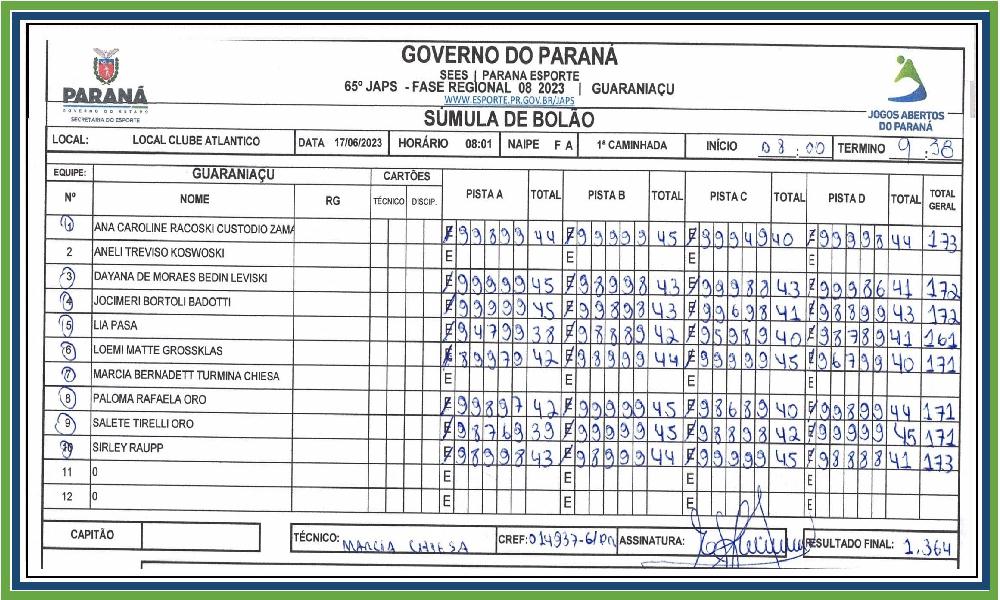 GOVERNO DO PARANÁ
SEES | PARANA ESPORTE
65º JAPS - FASE REGIONAL 08 2023 | GUARANIAÇU
WWW.ESPORTE.PR.GOV.BR/JAPS
PARANÁ
GOVERNO DO ESTADO
SECRETARIA DO ESPORTE
JOGOS ABERTOS
DO PARANÁ
SÚMULA DE BOLÃO
LOCAL: LOCAL CLUBE ATLANTICO DATA 17/06/2023 HORÁRIO 08:01 NAIPE F A 1ª CAMINHADA INÍCIO 08:00 TERMINO 9:38
EQUIPE: GUARANIAÇU CARTÕES PISTA A TOTAL PISTA B TOTAL PISTA C TOTAL PISTA D TOTAL TOTAL GERAL
Nº NOME RG TÉCNICO DISCIP.
1 ANA CAROLINE RACOSKI CUSTODIO ZAMA E 99899 44 E 99999 45 E 99949 40 E 99998 44 173
2 ANELI TREVISO KOSWOSKI E E E E
3 DAYANA DE MORAES BEDIN LEVISKI E 99999 45 E 98998 43 E 99988 43 E 99986 41 172
4 JOCIMERI BORTOLI BADOTTI E 99999 45 E 99898 43 E 99698 41 E 98899 43 172
5 LIA PASA E 94799 38 E 98889 42 E 95989 40 E 98789 41 161
6 LOEMI MATTE GROSSKLAS E 89979 42 E 98999 44 E 99999 45 E 96799 40 171
7 MARCIA BERNADETT TURMINA CHIESA E E E E
8 PALOMA RAFAELA ORO E 99897 42 E 99999 45 E 98689 40 E 99899 44 171
9 SALETE TIRELLI ORO E 98769 39 E 99999 45 E 98898 42 E 99999 45 171
10 SIRLEY RAUPP E 98998 43 E 98999 44 E 99999 45 E 98888 41 173
11 0 E E E E
12 0 E E E E
CAPITÃO TÉCNICO: MARCIA CHIESA CREF: 014937-G/PR ASSINATURA: RESULTADO FINAL: 1.364